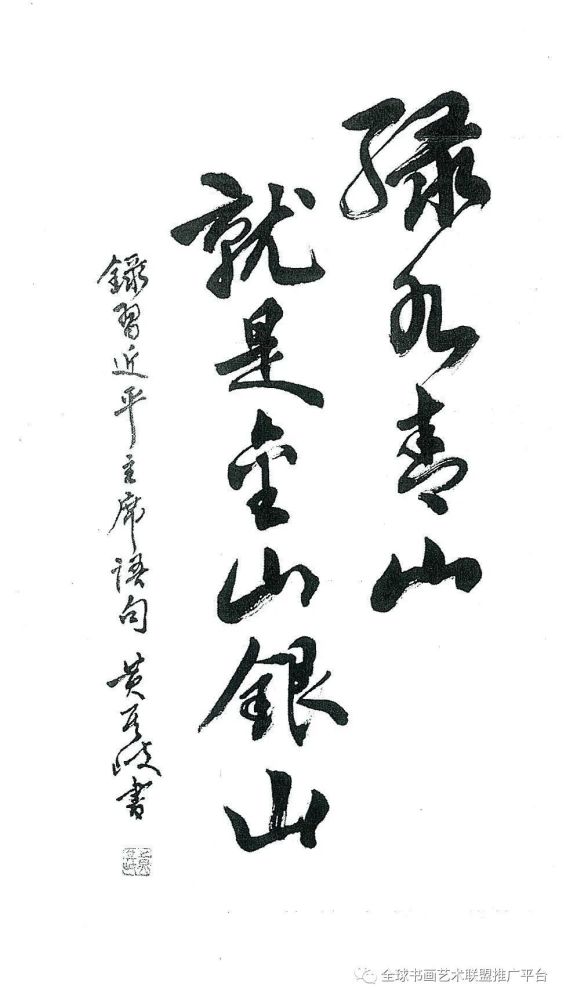 綠水青山
就是金山銀山
錄習近平主席語句 黄天岐書
全球书画艺术联盟推广平台